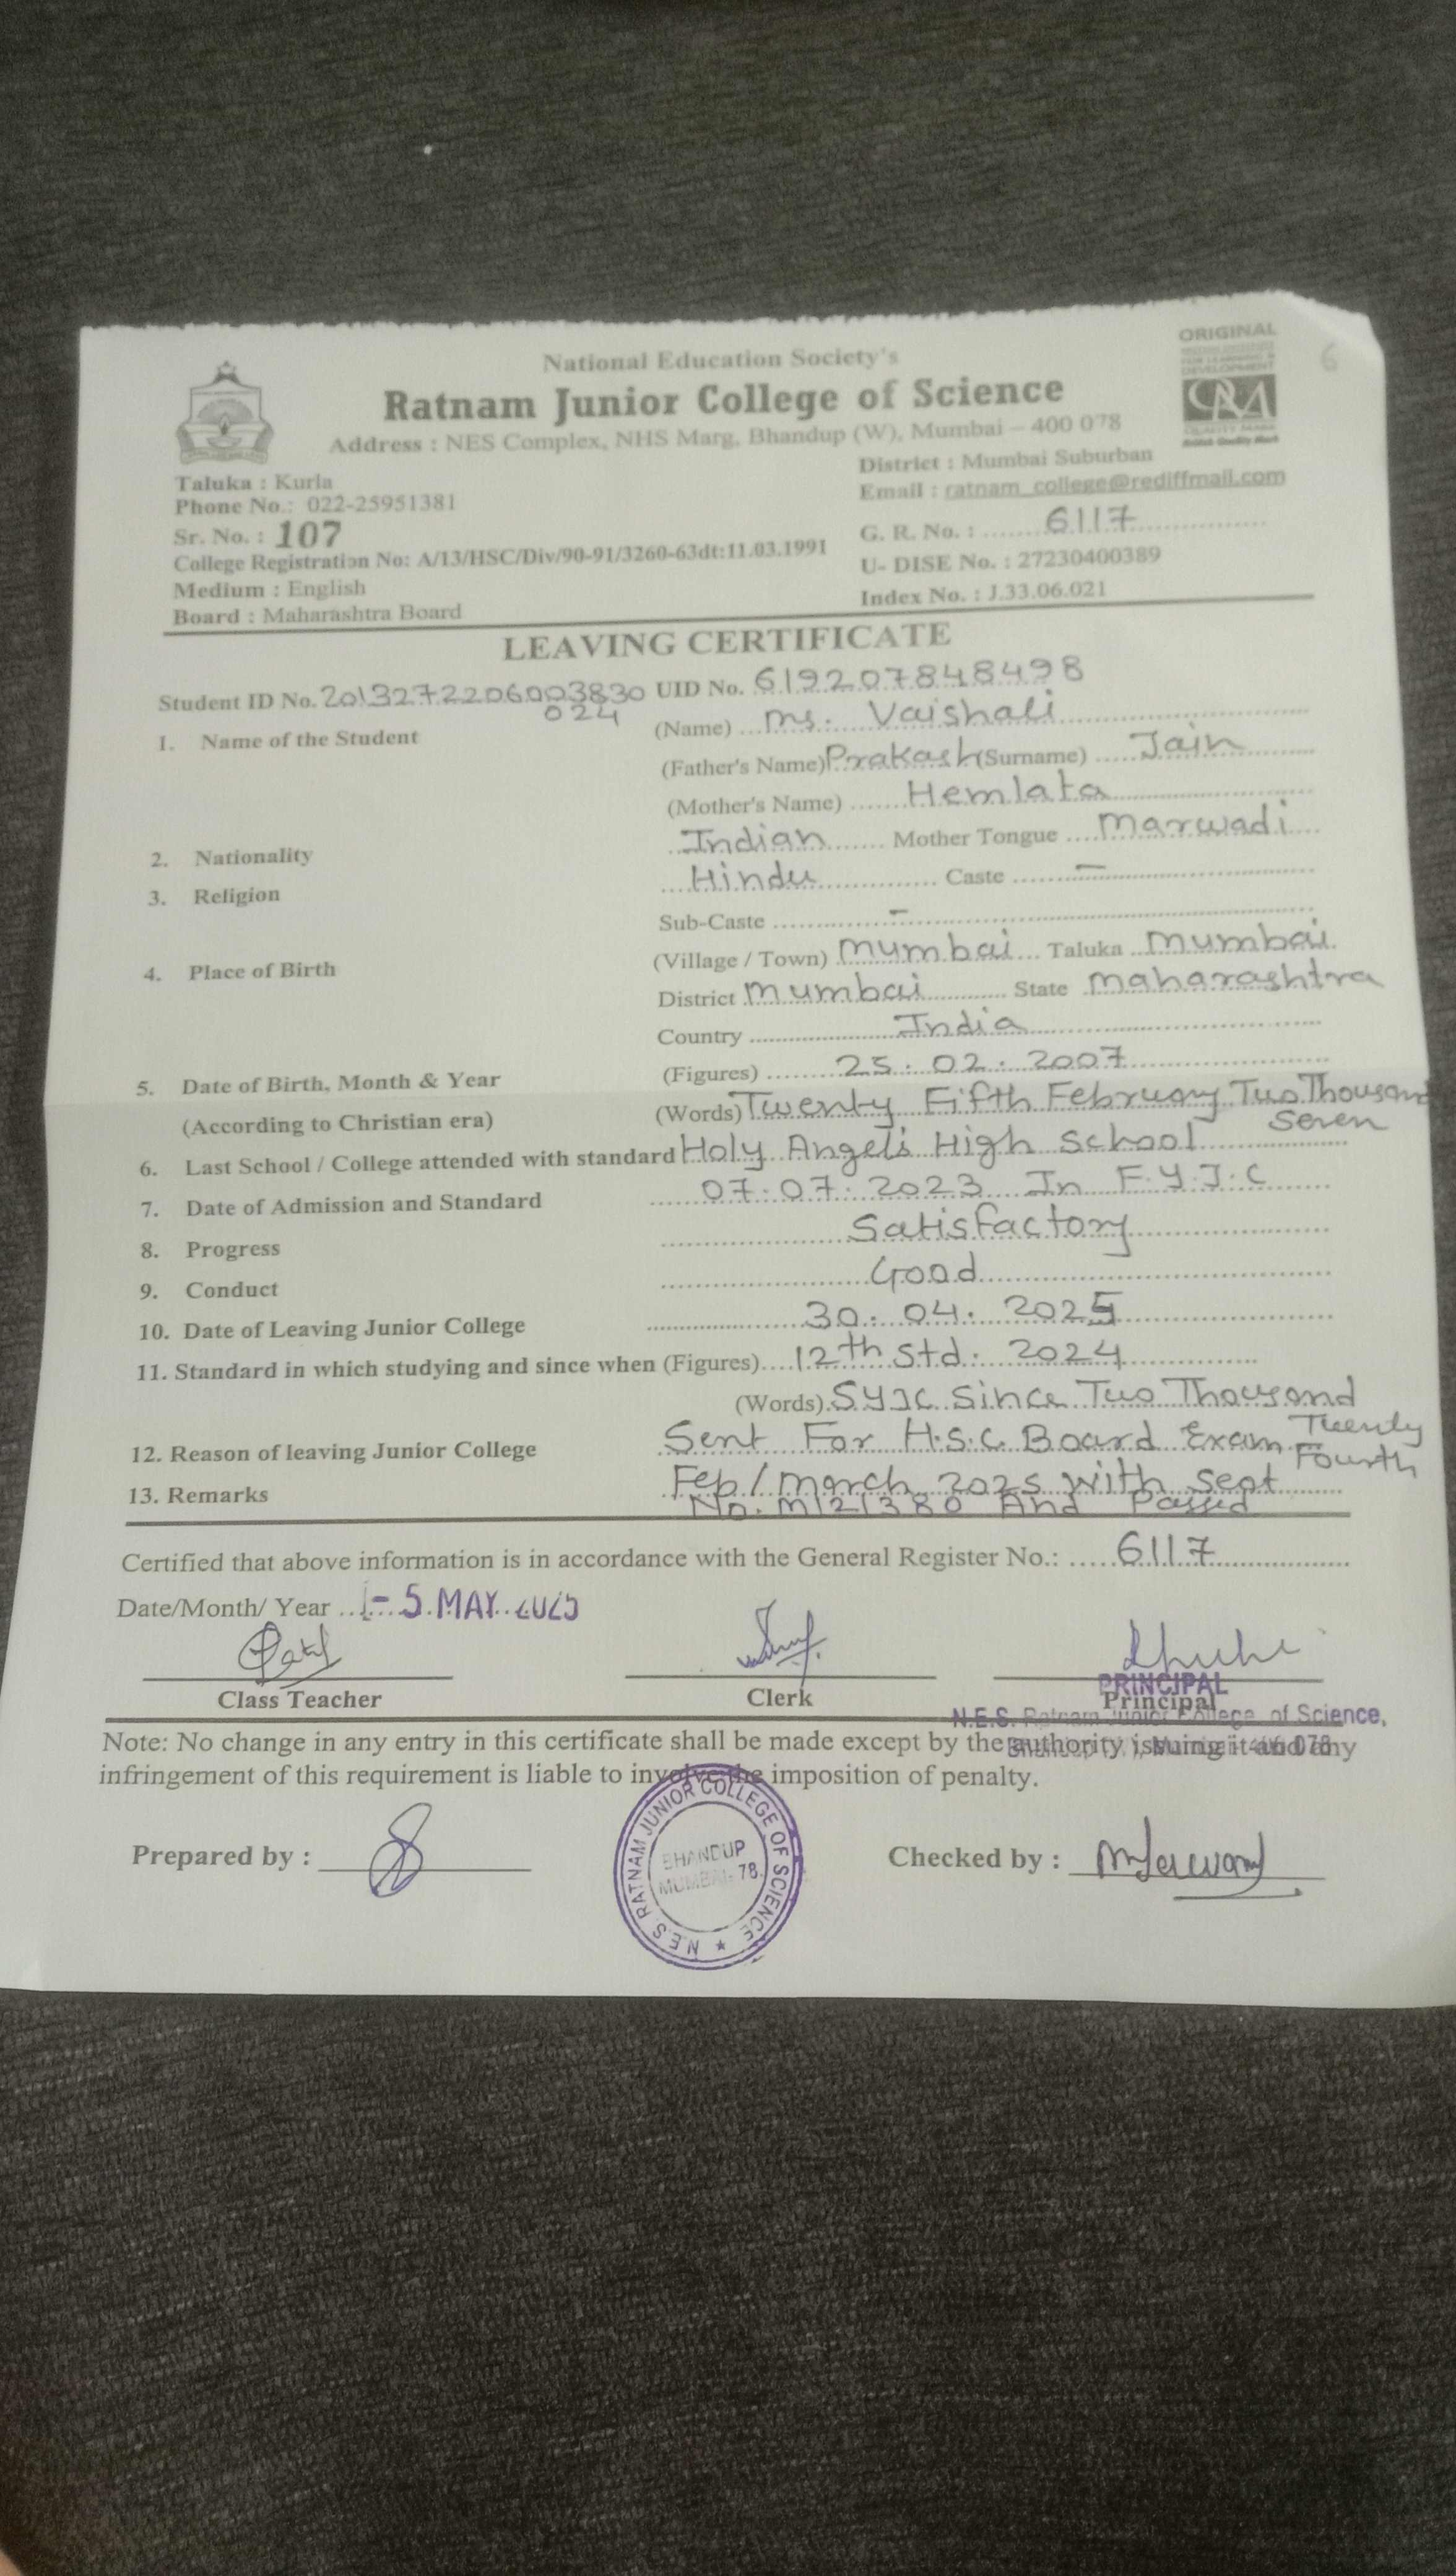 ORIGINAL
National Education Society's
Ratnam Junior College of Science
Address : NES Complex, NHS Marg, Bhandup (W), Mumbai – 400 078
Taluka : Kurla District : Mumbai Suburban
Phone No.: 022-25951381 Email : ratnam_college@rediffmail.com
Sr. No. : 107 G. R. No. : 6117
College Registration No: A/13/HSC/Div/90-91/3260-63dt:11.03.1991 U- DISE No. : 27230400389
Medium : English Index No. : J.33.06.021
Board : Maharashtra Board
LEAVING CERTIFICATE
Student ID No. 2013272206003830 UID No. 619207848498
024
1. Name of the Student (Name) Ms. Vaishali
(Father's Name) Prakash (Surname) Jain
(Mother's Name) Hemlata
2. Nationality Indian Mother Tongue Marwadi
3. Religion Hindu Caste –
Sub-Caste –
4. Place of Birth (Village / Town) Mumbai Taluka Mumbai
District Mumbai State Maharashtra
Country India
5. Date of Birth, Month & Year (Figures) 25.02.2007
(According to Christian era) (Words) Twenty Fifth February Two Thousand
Seven
6. Last School / College attended with standard Holy Angel's High School
7. Date of Admission and Standard 07.07.2023 In F.Y.J.C
8. Progress Satisfactory
9. Conduct Good
10. Date of Leaving Junior College 30.04.2025
11. Standard in which studying and since when (Figures) 12th Std. 2024
(Words) SYJC Since Two Thousand
Twenty Fourth
12. Reason of leaving Junior College Sent For H.S.C. Board Exam
13. Remarks Feb/March 2025 with seat
No. M121380 And Passed
Certified that above information is in accordance with the General Register No.: 6117
Date/Month/ Year - 5 MAY 2025
Class Teacher Clerk Principal
PRINCIPAL
N.E.S. Ratnam Junior College of Science,
Note: No change in any entry in this certificate shall be made except by the authority issuing it and any
infringement of this requirement is liable to involve the imposition of penalty.
Prepared by : Checked by :
N.E.S. RATNAM JUNIOR COLLEGE OF SCIENCE ★
BHANDUP
MUMBAI-78.